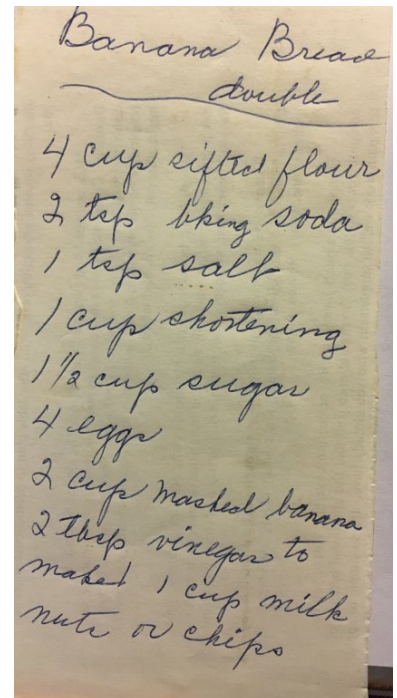 Banana Bread
double
4 cup sifted flour
2 tsp bking soda
1 tsp salt
1 cup shortening
1 1/2 cup sugar
4 eggs
2 cup mashed banana
2 tbsp vinegar to
maked 1 cup milk
nuts or chips